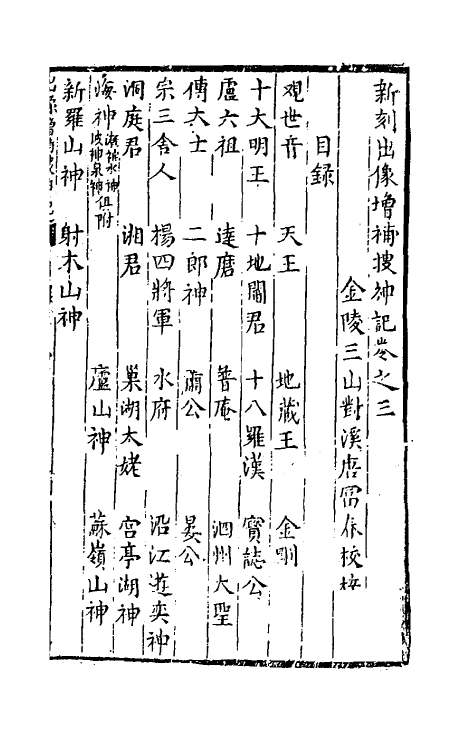 新刻出像增補搜神記卷之三
金陵三山對溪唐富春校梓
目錄
觀世音 天王 地藏王 金剛
十大明王 十地閻君 十八羅漢 寶誌公
盧六祖 達磨 普庵 泗州大聖
傅大士 二郎神 蕭公 晏公
宗三舍人 楊四將軍 水府 沿江遊奕神
洞庭君 湘君 巢湖太姥 宫亭湖神
海神 潮神水神波神泉神俱附 廬山神 蘇嶺山神
新羅山神 射木山神